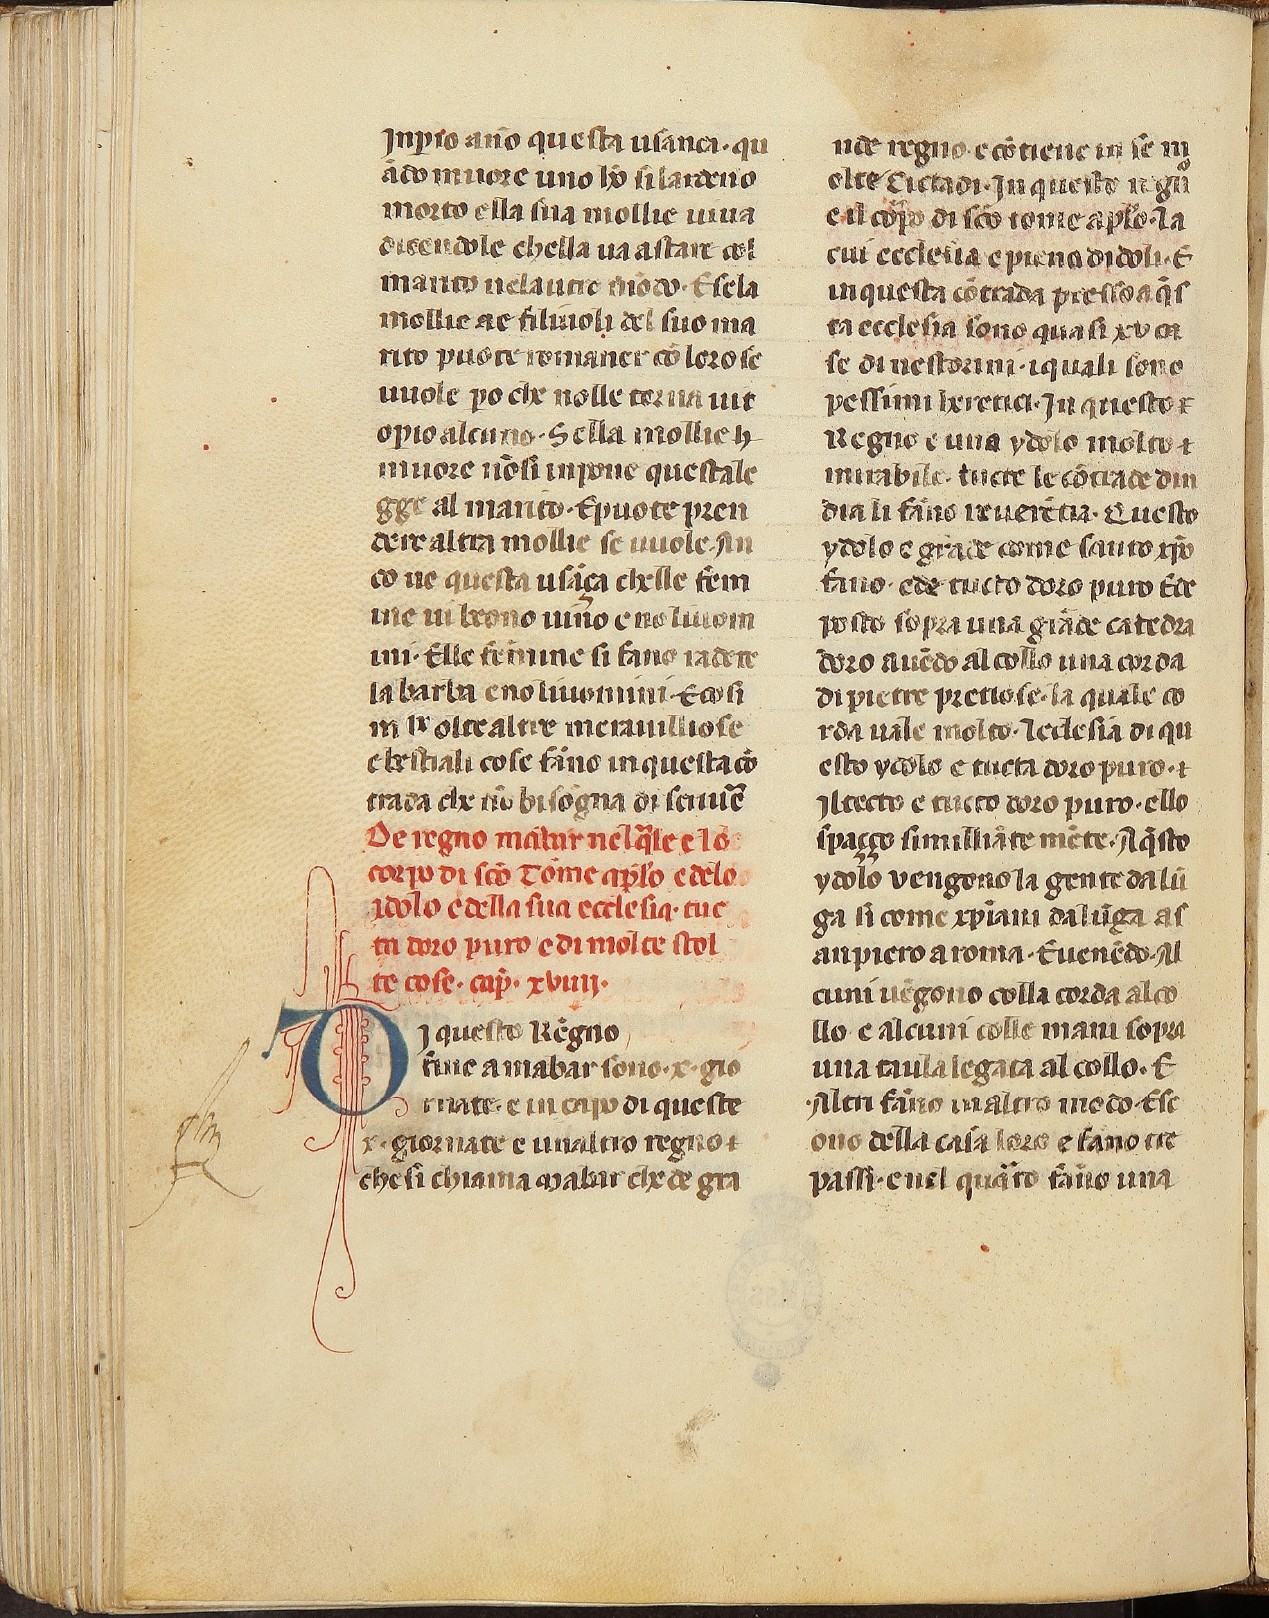 Jnpio ano questa usanca. qu
ādo muore uno ho si lardeno
morto ella sua mollie uiua
dicendole chella ua a stare col
marito nelautre mōdo. Esela
mollie ae filiuoli del suo ma
rito puote romaner cō loro se
uuole po che nolle torna uit
opio alcuno. Sella mollie
muore nōsi inpone questale
gge al marito. Epuote pren
dere altra mollie se uuole. An
co ne questa usāça chelle fem
ine ui beono uino e no liuom
ini. Elle femine si fano radere
la barba e no liuomini. E cosi
molte altre merauilliose
e bestiali cose fāno in questa cō
trada che nō bisogna di scriuē
De regno mabar nel q̄le e lo
corpo di sc̄o Tōme ap̄lo e delo
ydolo e della sua ecclesia. tuc
ta doro puro e di molte stol
te cose. cap̄. xviiij.
Di questo Rēgno
fine a mabar sono. x. gio
rnate. e in capo di queste
x. giornate e unaltro regno ⁊
che si chiama mabar che de gra
nde regno. e cōtiene in sē m
olte Cictadi. In questo regn̄
e il cōrpo di sc̄o tome ap̄lo. la
cui ecclesia e piena didoli. E
in questa cōtrada presso a q̄s
ta ecclesia sono quasi xv ca
se di nestorini. iquali sono
pessimi heretici. In questo ⁊
Regno e una ydolo molto ⁊
mirabile. tucte le cōtrade din
dia li fāno reuerētia. Questo
ydolo e grāde come santo xp̄o
fano. ede tucto doro puro Ede
posto sopra una grāde catedra
doro auēdo al collo una corda
di pietre pretiose. la quale co
rda uale molto. lecclesia di qu
esto ydolo e tucta doro puro. ⁊
Jltecto e tucto doro puro. ello
spaçço simillāte mēte. A q̄sto
ydolo vengono la gente da lū
ga si come xp̄iani da lūga as
an piero a roma. E uenēdo. Al
cuni uēgono colla corda al co
llo e alcuni colle mani sopra
una taula legata al collo. E
Altri fāno in altro modo. Esc
ono della casa loro e fano tre
passi. e nel quarto fāno una